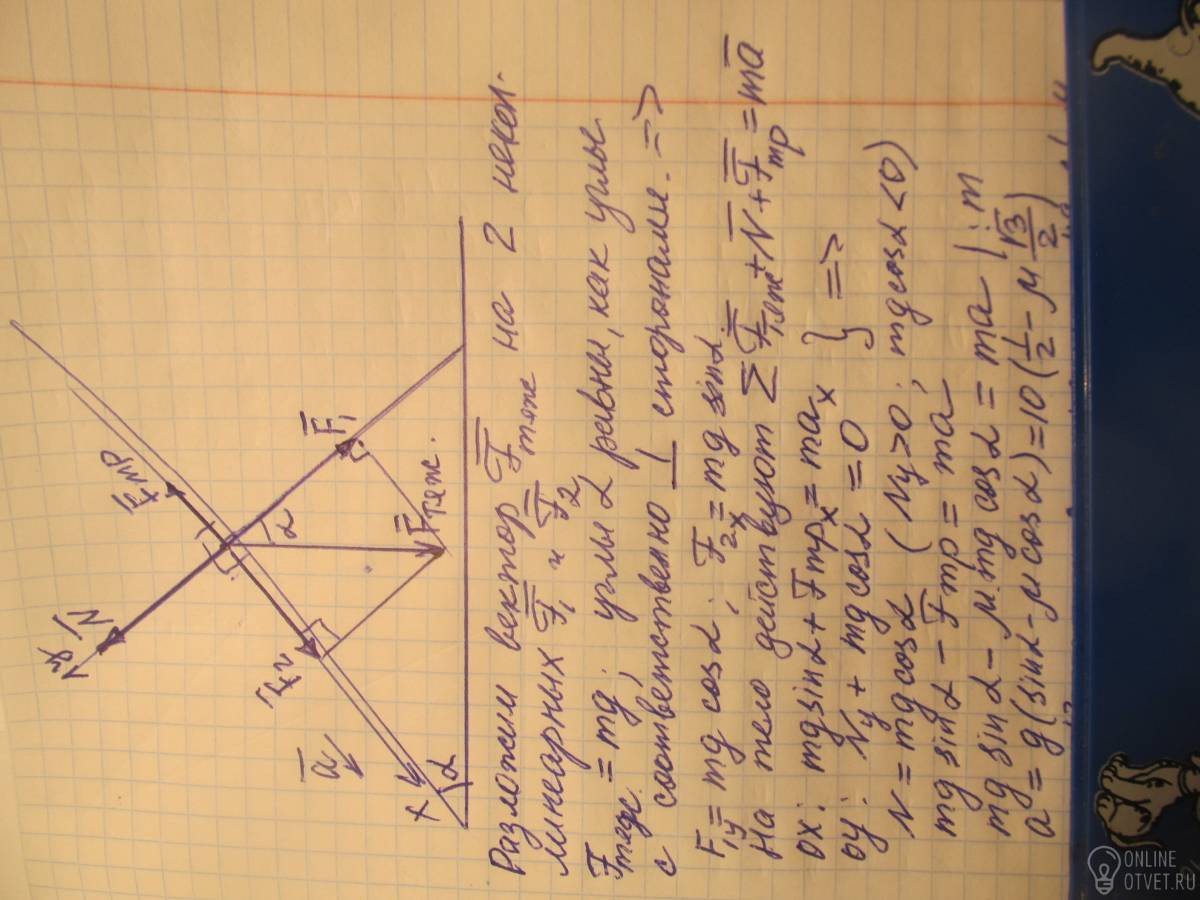 y
N̅
F̅тр
F̅₂
a̅
x
α
α
F̅₁
F̅тяж.
Разложим вектор F̅тяж на 2 некол-
линеарных F̅₁ и F̅₂
Fтяж. = mg; углы α равны, как углы
с соответственно ⊥ сторонами. =>
F₁y = mg cosα; F₂x = mg sinα.
На тело действуют ∑ F̅тяж + N̅ + F̅тр = ma̅
ox: mg sinα + Fтрx = max
oy: Ny + mg cosα = 0 } =>
N = mg cosα (Ny>0; mg cosα <0)
mg sinα - Fтр = ma;
mg sinα - μ·mg cosα = ma | :m
a = g(sinα - μ cosα) = 10(1/2 - μ √3/2)
ONLINE
OTVET.RU